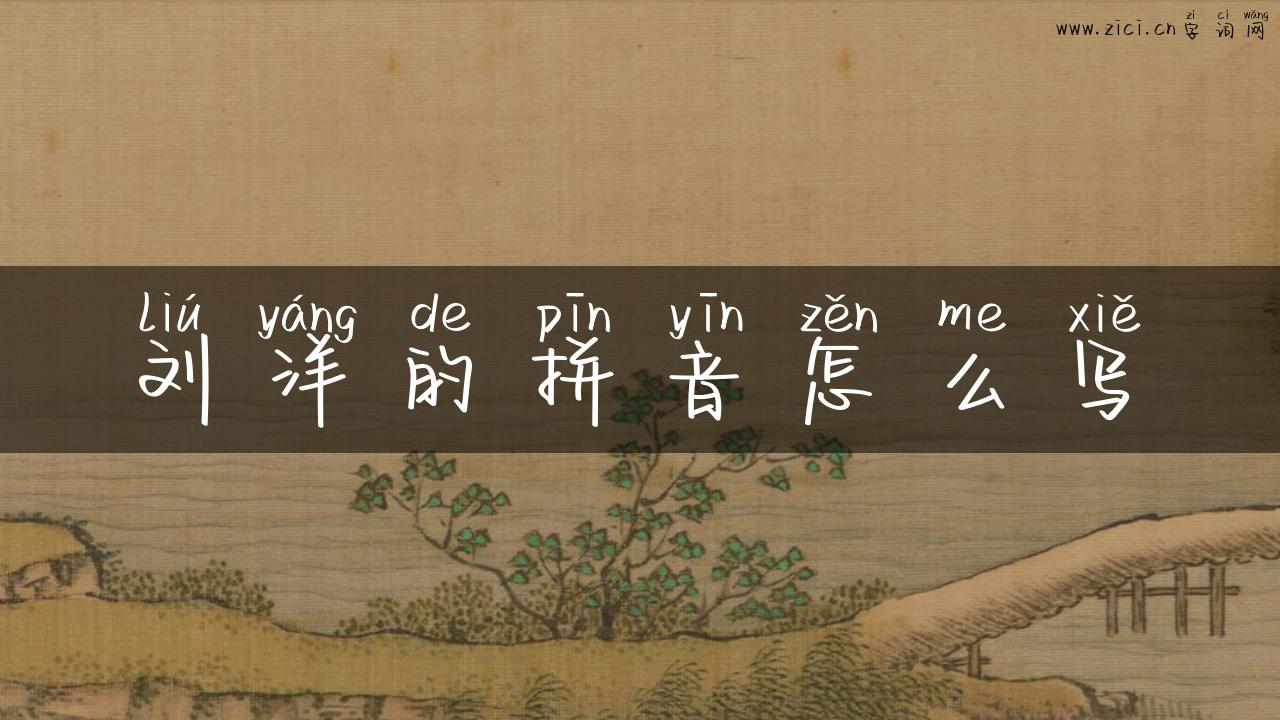 zì cí wǎng
www.zici.cn 字 词 网
liú yáng de pīn yīn zěn me xiě
刘 洋 的 拼 音 怎 么 写